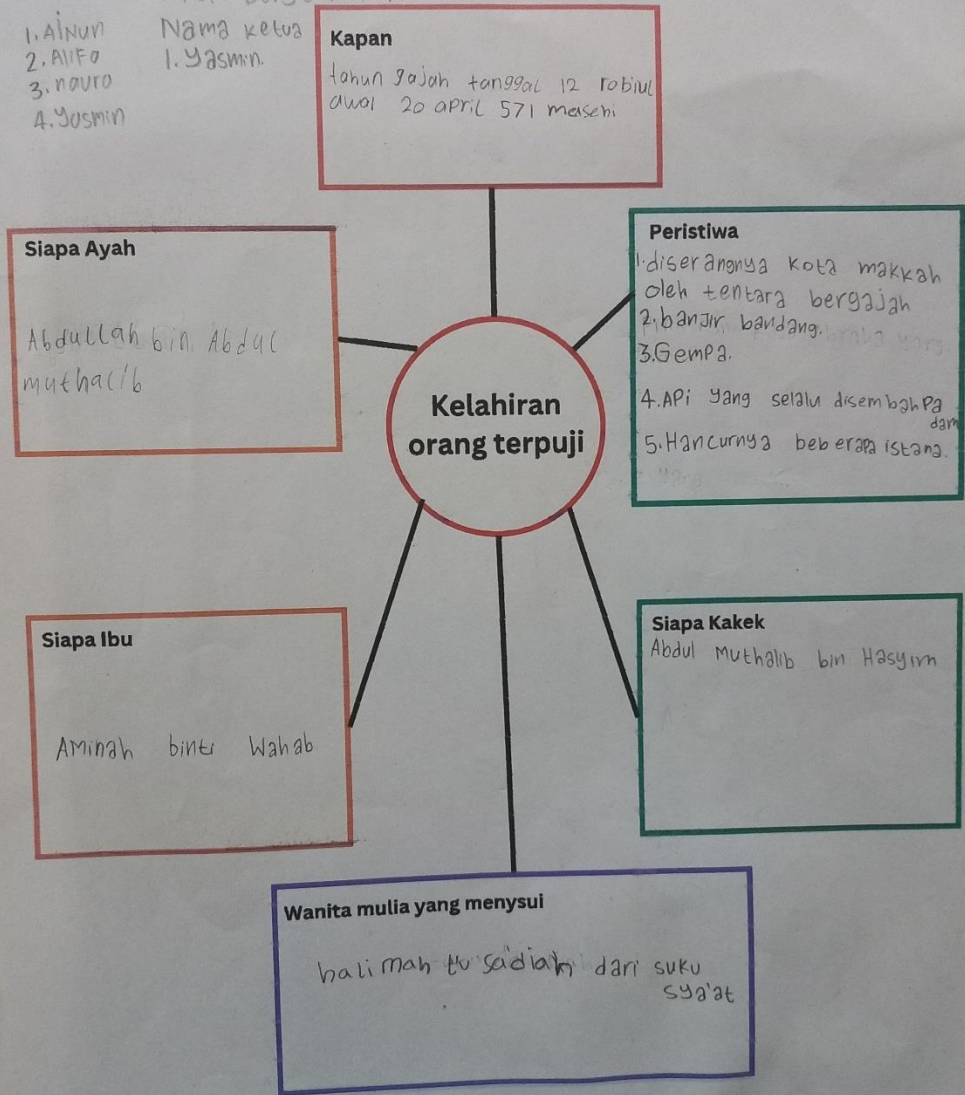 1. AiNun
2. AliFa
3. naura
4. Yasmin
Nama ketua
1. Yasmin.
Kapan
tahun gajah tanggal 12 robiul
awal 20 april 571 masehi
Siapa Ayah
Abdullah bin Abdul
muthalib
Peristiwa
1. diserangnya kota makkah
oleh tentara bergajah
2. banjir bandang.
3. Gempa.
4. APi yang selalu disembah Pa
dam
5. Hancurnya beberapa istana.
Kelahiran
orang terpuji
Siapa Ibu
AMinah binti Wahab
Siapa Kakek
Abdul Muthalib bin Hasyim
Wanita mulia yang menysui
halimah tu sa'diah dari suku
sya'at